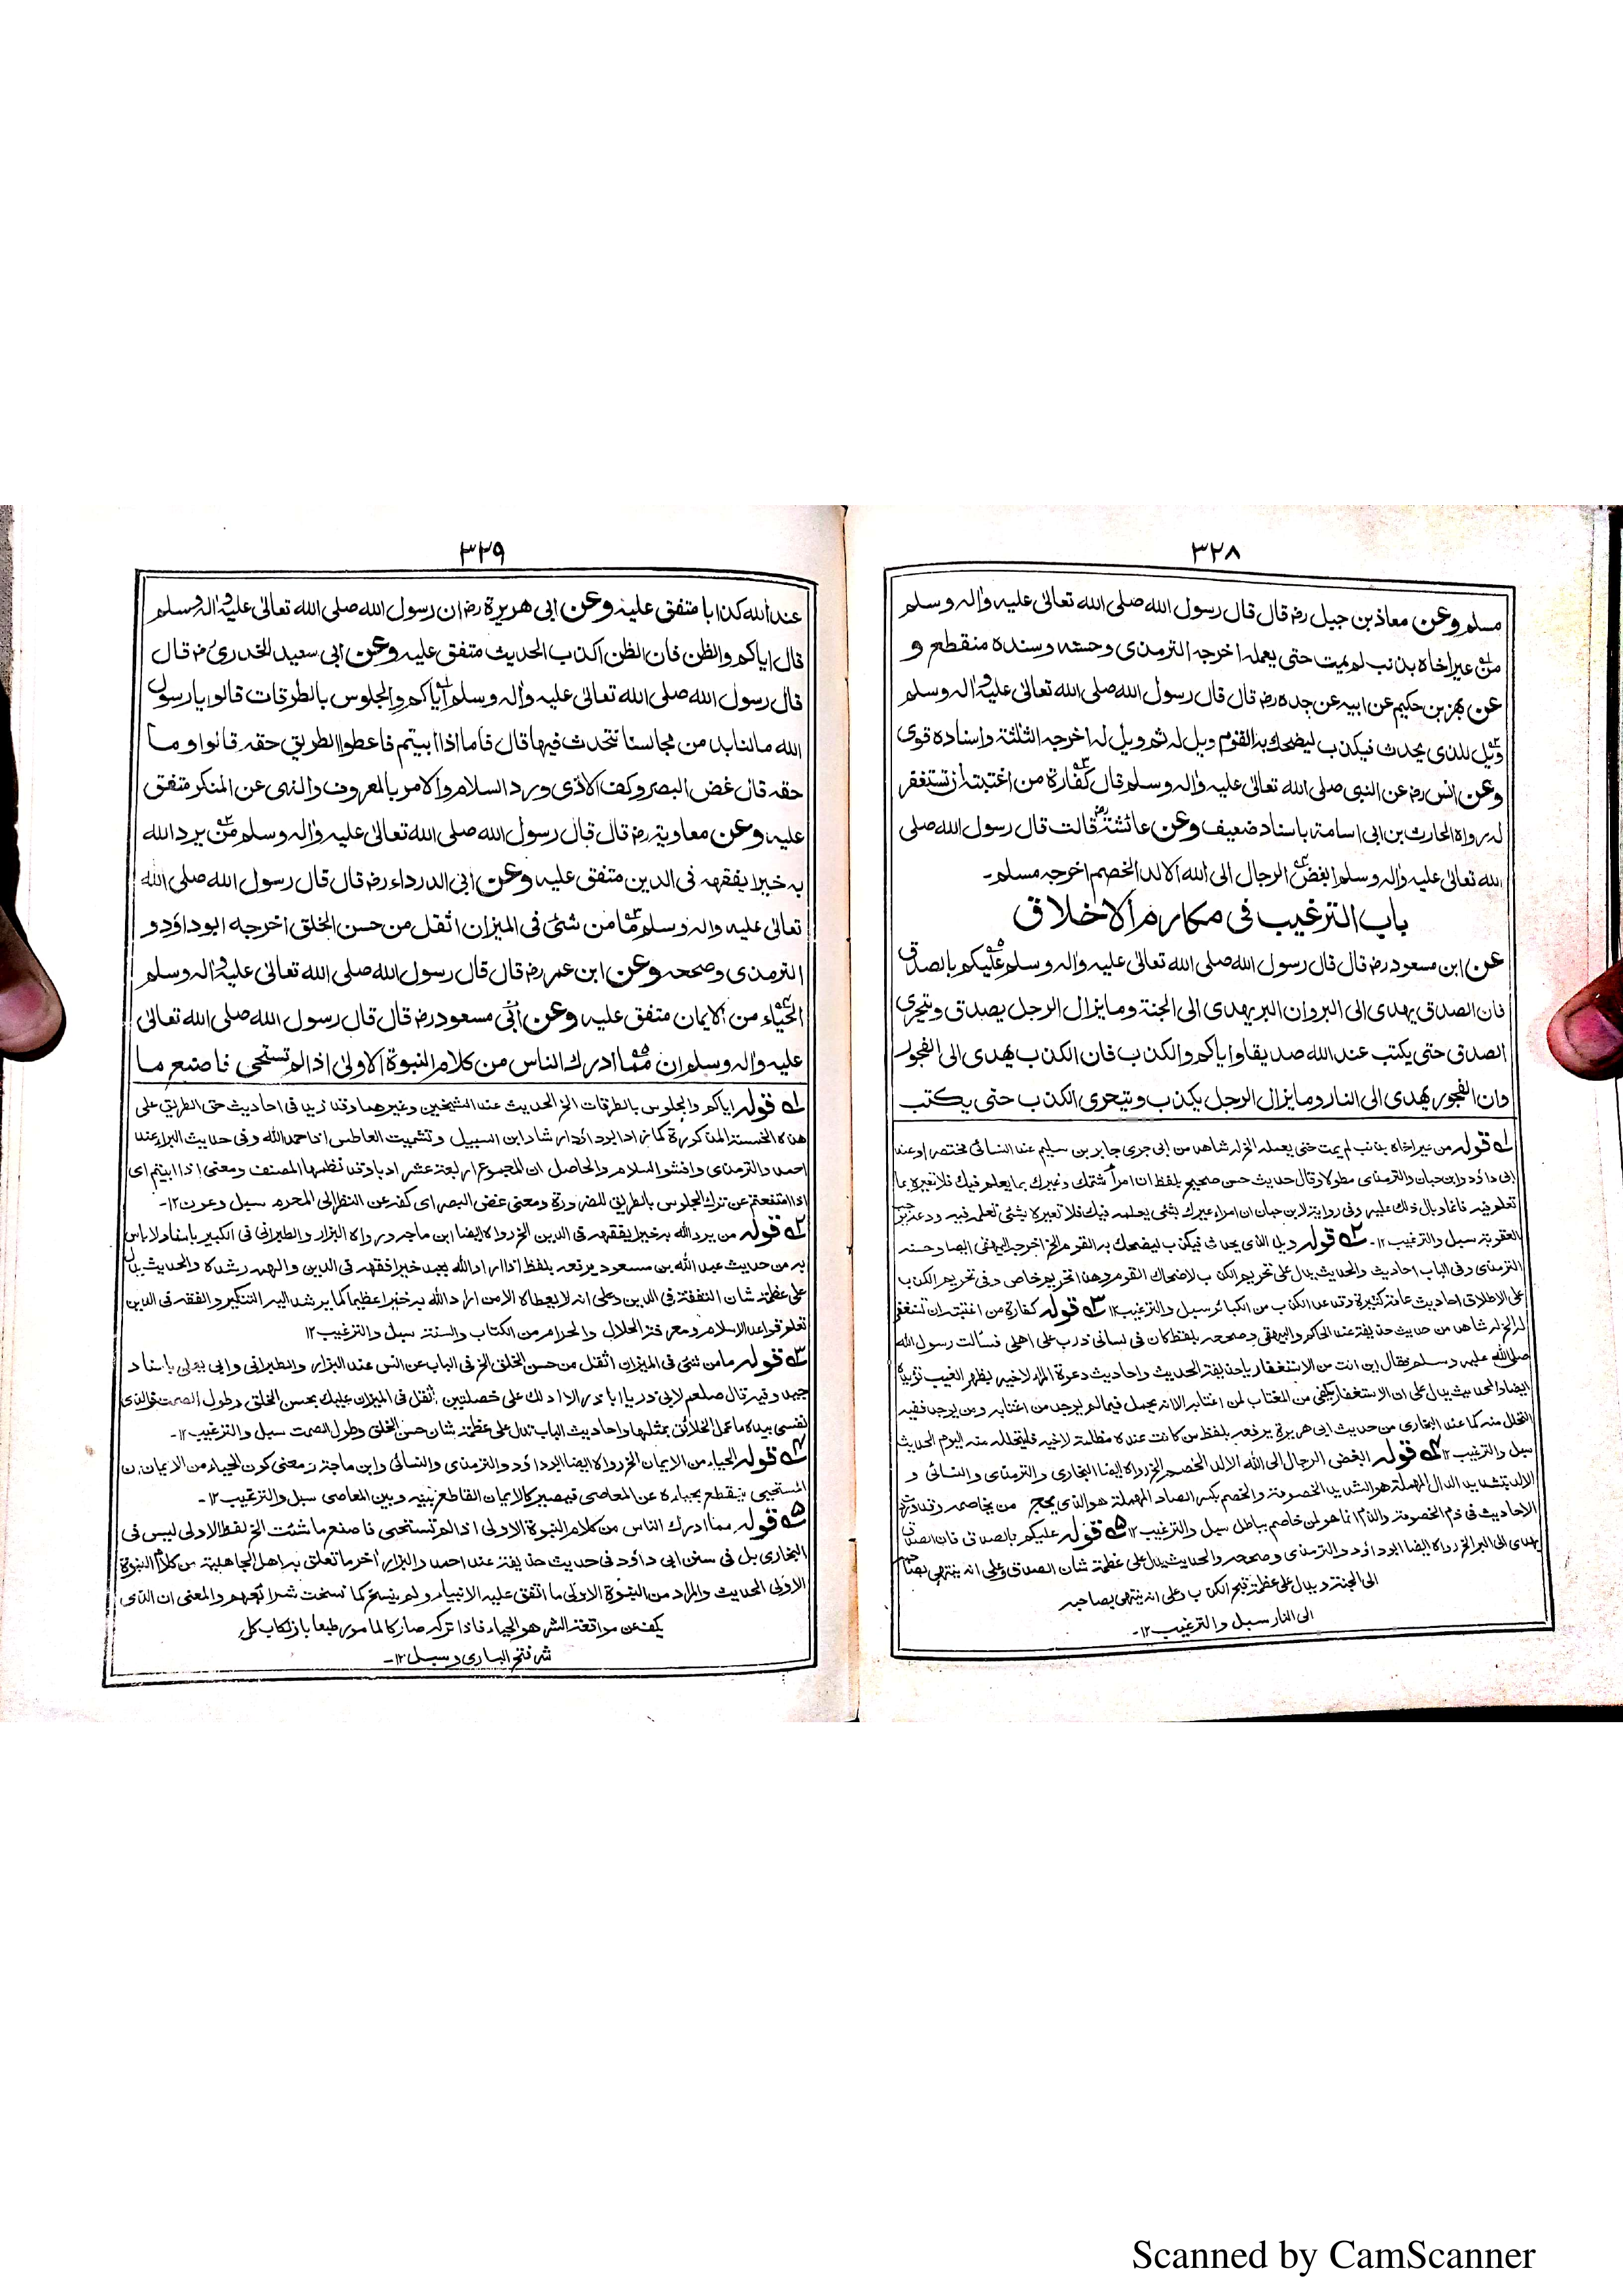 ٣٢٨
مسلم وعن معاذ بن جبل رضـ قال قال رسول الله صلى الله تعالى عليه واٰله وسلم
من عير اخاه بذنب لم يمت حتى يعمله اخرجه الترمذى وحسنه وسنده منقطع و
عن بهز بن حكيم عن ابيه عن جده رضـ قال قال رسول الله صلى الله تعالى عليه واٰله وسلم
ويل للذى يحدث فيكذب ليضحك به القوم ويل له ثم ويل له اخرجه الثلثة واسناده قوى
وعن انس رضـ عن النبى صلى الله تعالى عليه واٰله وسلم قال كفارة من اغتبته ان تستغفر
له رواه الحارث بن ابى اسامة باسناد ضعيف وعن عائشة رضـ قالت قال رسول الله صلى
الله تعالى عليه واٰله وسلم ابغض الرجال الى الله الالد الخصم اخرجه مسلم۔
باب الترغيب فى مكارم الاخلاق
عن ابن مسعود رضـ قال قال رسول الله صلى الله تعالى عليه واٰله وسلم عليكم بالصدق
فان الصدق يهدى الى البر وان البر يهدى الى الجنة وما يزال الرجل يصدق ويتحرى
الصدق حتى يكتب عند الله صديقا واياكم والكذب فان الكذب يهدى الى الفجور
وان الفجور يهدى الى النار وما يزال الرجل يكذب ويتحرى الكذب حتى يكتب
١ قوله من عير اخاه بذنب لم يمت حتى يعمله الخ له شاهد من ابى جرى جابر بن سليم عند النسائى مختصرا وعند
ابى داؤد وابن حبان والترمذى مطولا وقال حديث حسن صحيح بلفظ ان امرأ شتمك وعيرك بما يعلم فيك فلا تعيره بما
تعلم فيه فانما وبال ذلك عليه وفى رواية لابن حبان ان امراء عيرك بشئى يعلمه فيك فلا تعيره بشئى تعلمه فيه ودعه
العقوبة سبل والترغيب ١٢۔ ٢ قوله ويل للذى يحدث فيكذب ليضحك به القوم الخ اخرجه البيهقى ايضا وحسنه
الترمذى وفى الباب احاديث والحديث يدل على تحريم الكذب لاضحاك القوم وهذا تحريم خاص وفى تحريم الكذب
على الاطلاق احاديث عامة كثيرة وقد عد الكذب من الكبائر سبل والترغيب ١٢ ٣ قوله كفارة من اغتبته ان تستغفر
له الخ له شاهد من حديث حذيفة عند الحاكم والبيهقى وصححه بلفظ كان فى لسانى ذرب على اهلى فسألت رسول الله
صلى الله عليه وسلم فقال اين انت من الاستغفار يا حذيفة الحديث واحاديث دعوة المرء لاخيه بظهر الغيب تزيده
ايضا والحديث يدل على ان الاستغفار يكفى من المغتاب لمن اغتابه الا انه يحمل فيما لم يوجد من اغتابه ومن يوجد ففيه
التحلل منه كما عند البخارى من حديث ابى هريرة يرفعه بلفظ من كانت عنده مظلمة لاخيه فليتحلله منه اليوم الحديث
سبل والترغيب ١٢ ٤ قوله ابغض الرجال الى الله الالد الخصم الخ رواه ايضا البخارى والترمذى والنسائى و
الالد بتشديد الدال المهملة هو الشديد الخصومة والخصم بكسر الصاد المهملة هو الذى يحج من يخاصمه وقد وردت
الاحاديث فى ذم الخصومة والذم انما هو لمن خاصم بباطل سبل والترغيب ١٢ ٥ قوله عليكم بالصدق فان الصدق
يهدى الى البر الخ رواه ايضا ابو داؤد والترمذى وصححه والحديث يدل على عظمة شان الصدق وعلى انه ينتهى بصاحبه
الى الجنة ويدل على عظمة قبح الكذب وعلى انه ينتهى بصاحبه
الى النار سبل والترغيب ١٢۔
٣٢٩
عند الله كذابا متفق عليه وعن ابى هريرة رضـ ان رسول الله صلى الله تعالى عليه واٰله وسلم
قال اياكم والظن فان الظن اكذب الحديث متفق عليه وعن ابى سعيد الخدرى رضـ قال
قال رسول الله صلى الله تعالى عليه واٰله وسلم اياكم والجلوس بالطرقات قالوا يا رسول
الله مالنا بد من مجالسنا نتحدث فيها قال فاما اذا ابيتم فاعطوا الطريق حقه قالوا وما
حقه قال غض البصر وكف الاذى ورد السلام والامر بالمعروف والنهى عن المنكر متفق
عليه وعن معاوية رضـ قال قال رسول الله صلى الله تعالى عليه واٰله وسلم من يرد الله
به خيرا يفقهه فى الدين متفق عليه وعن ابى الدرداء رضـ قال قال رسول الله صلى الله
تعالى عليه واله وسلم ما من شئى فى الميزان اثقل من حسن الخلق اخرجه ابو داؤد و
الترمذى وصححه وعن ابن عمر رضـ قال قال رسول الله صلى الله تعالى عليه واٰله وسلم
الحياء من الايمان متفق عليه وعن ابى مسعود رضـ قال قال رسول الله صلى الله تعالى
عليه واٰله وسلم ان مما ادرك الناس من كلام النبوة الاولى اذا لم تستحى فاصنع ما
١ قوله اياكم والجلوس بالطرقات الخ الحديث عند الشيخين وغيرهما وقد زيد فى احاديث حق الطريق على
هذه الخمسة المذكورة كما زاد ابو داؤد ارشاد ابن السبيل وتشميت العاطس اذا حمد الله وفى حديث البراء عند
احمد والترمذى وافشوا السلام والحاصل ان المجموع اربعة عشر ادبا وقد نظمها المصنف ومعنى اذا ابيتم اى
اذا امتنعتم عن ترك الجلوس بالطريق للضرورة ومعنى غض البصر اى كفه عن النظر الى المحرم سبل وعون ١٢۔
٢ قوله من يرد الله به خيرا يفقهه فى الدين الخ رواه ايضا ابن ماجه ورواه البزار والطبرانى فى الكبير باسناد لاباس
به من حديث عبد الله بن مسعود يرفعه بلفظ اذا اراد الله بعبد خيرا فقهه فى الدين والهمه رشده والحديث يدل
على عظمة شان التفقة فى الدين وعلى انه لا يعطاه الا من اراد الله به خيرا عظيما كما يرشد اليه التنكير والفقه فى الدين
تعلم قواعد الاسلام ومعرفة الحلال والحرام من الكتاب والسنة سبل والترغيب ١٢
٣ قوله ما من شئى فى الميزان اثقل من حسن الخلق الخ فى الباب عن انس عند البزار والطبرانى وابى يعلى باسناد
جيد وفيه قال صلعم لابى ذر يا ابا ذر الا ادلك على خصلتين اثقل فى الميزان عليك بحسن الخلق وطول الصمت فوالذى
نفسى بيده ما عمل الخلائق بمثلها واحاديث الباب تدل على عظمة شان حسن الخلق وطول الصمت سبل والترغيب ١٢۔
٤ قوله الحياء من الايمان الخ رواه ايضا ابو داؤد والترمذى والنسائى وابن ماجة ومعنى كون الحياء من الايمان ان
المستحيى ينقطع بحيائه عن المعاصى فيصير كالايمان القاطع بينه وبين المعاصى سبل والترغيب ١٢۔
٥ قوله مما ادرك الناس من كلام النبوة الاولى اذا لم تستحيى فاصنع ما شئت الخ لفظ الاولى ليس فى
البخارى بل فى سنن ابى داؤد فى حديث حذيفة عند احمد والبزار اخر ما تعلق به اهل الجاهلية من كلام النبوة
الاولى الحديث والمراد من النبوة الاولى ما اتفق عليه الانبياء ولم ينسخ كما نسخت شرائعهم والمعنى ان الذى
يكف عن مواقعة الشر هو الحياء فاذا تركه صار كالمامور طبعا بارتكاب كل
شر فتح البارى وسبل ١٢۔
Scanned by CamScanner